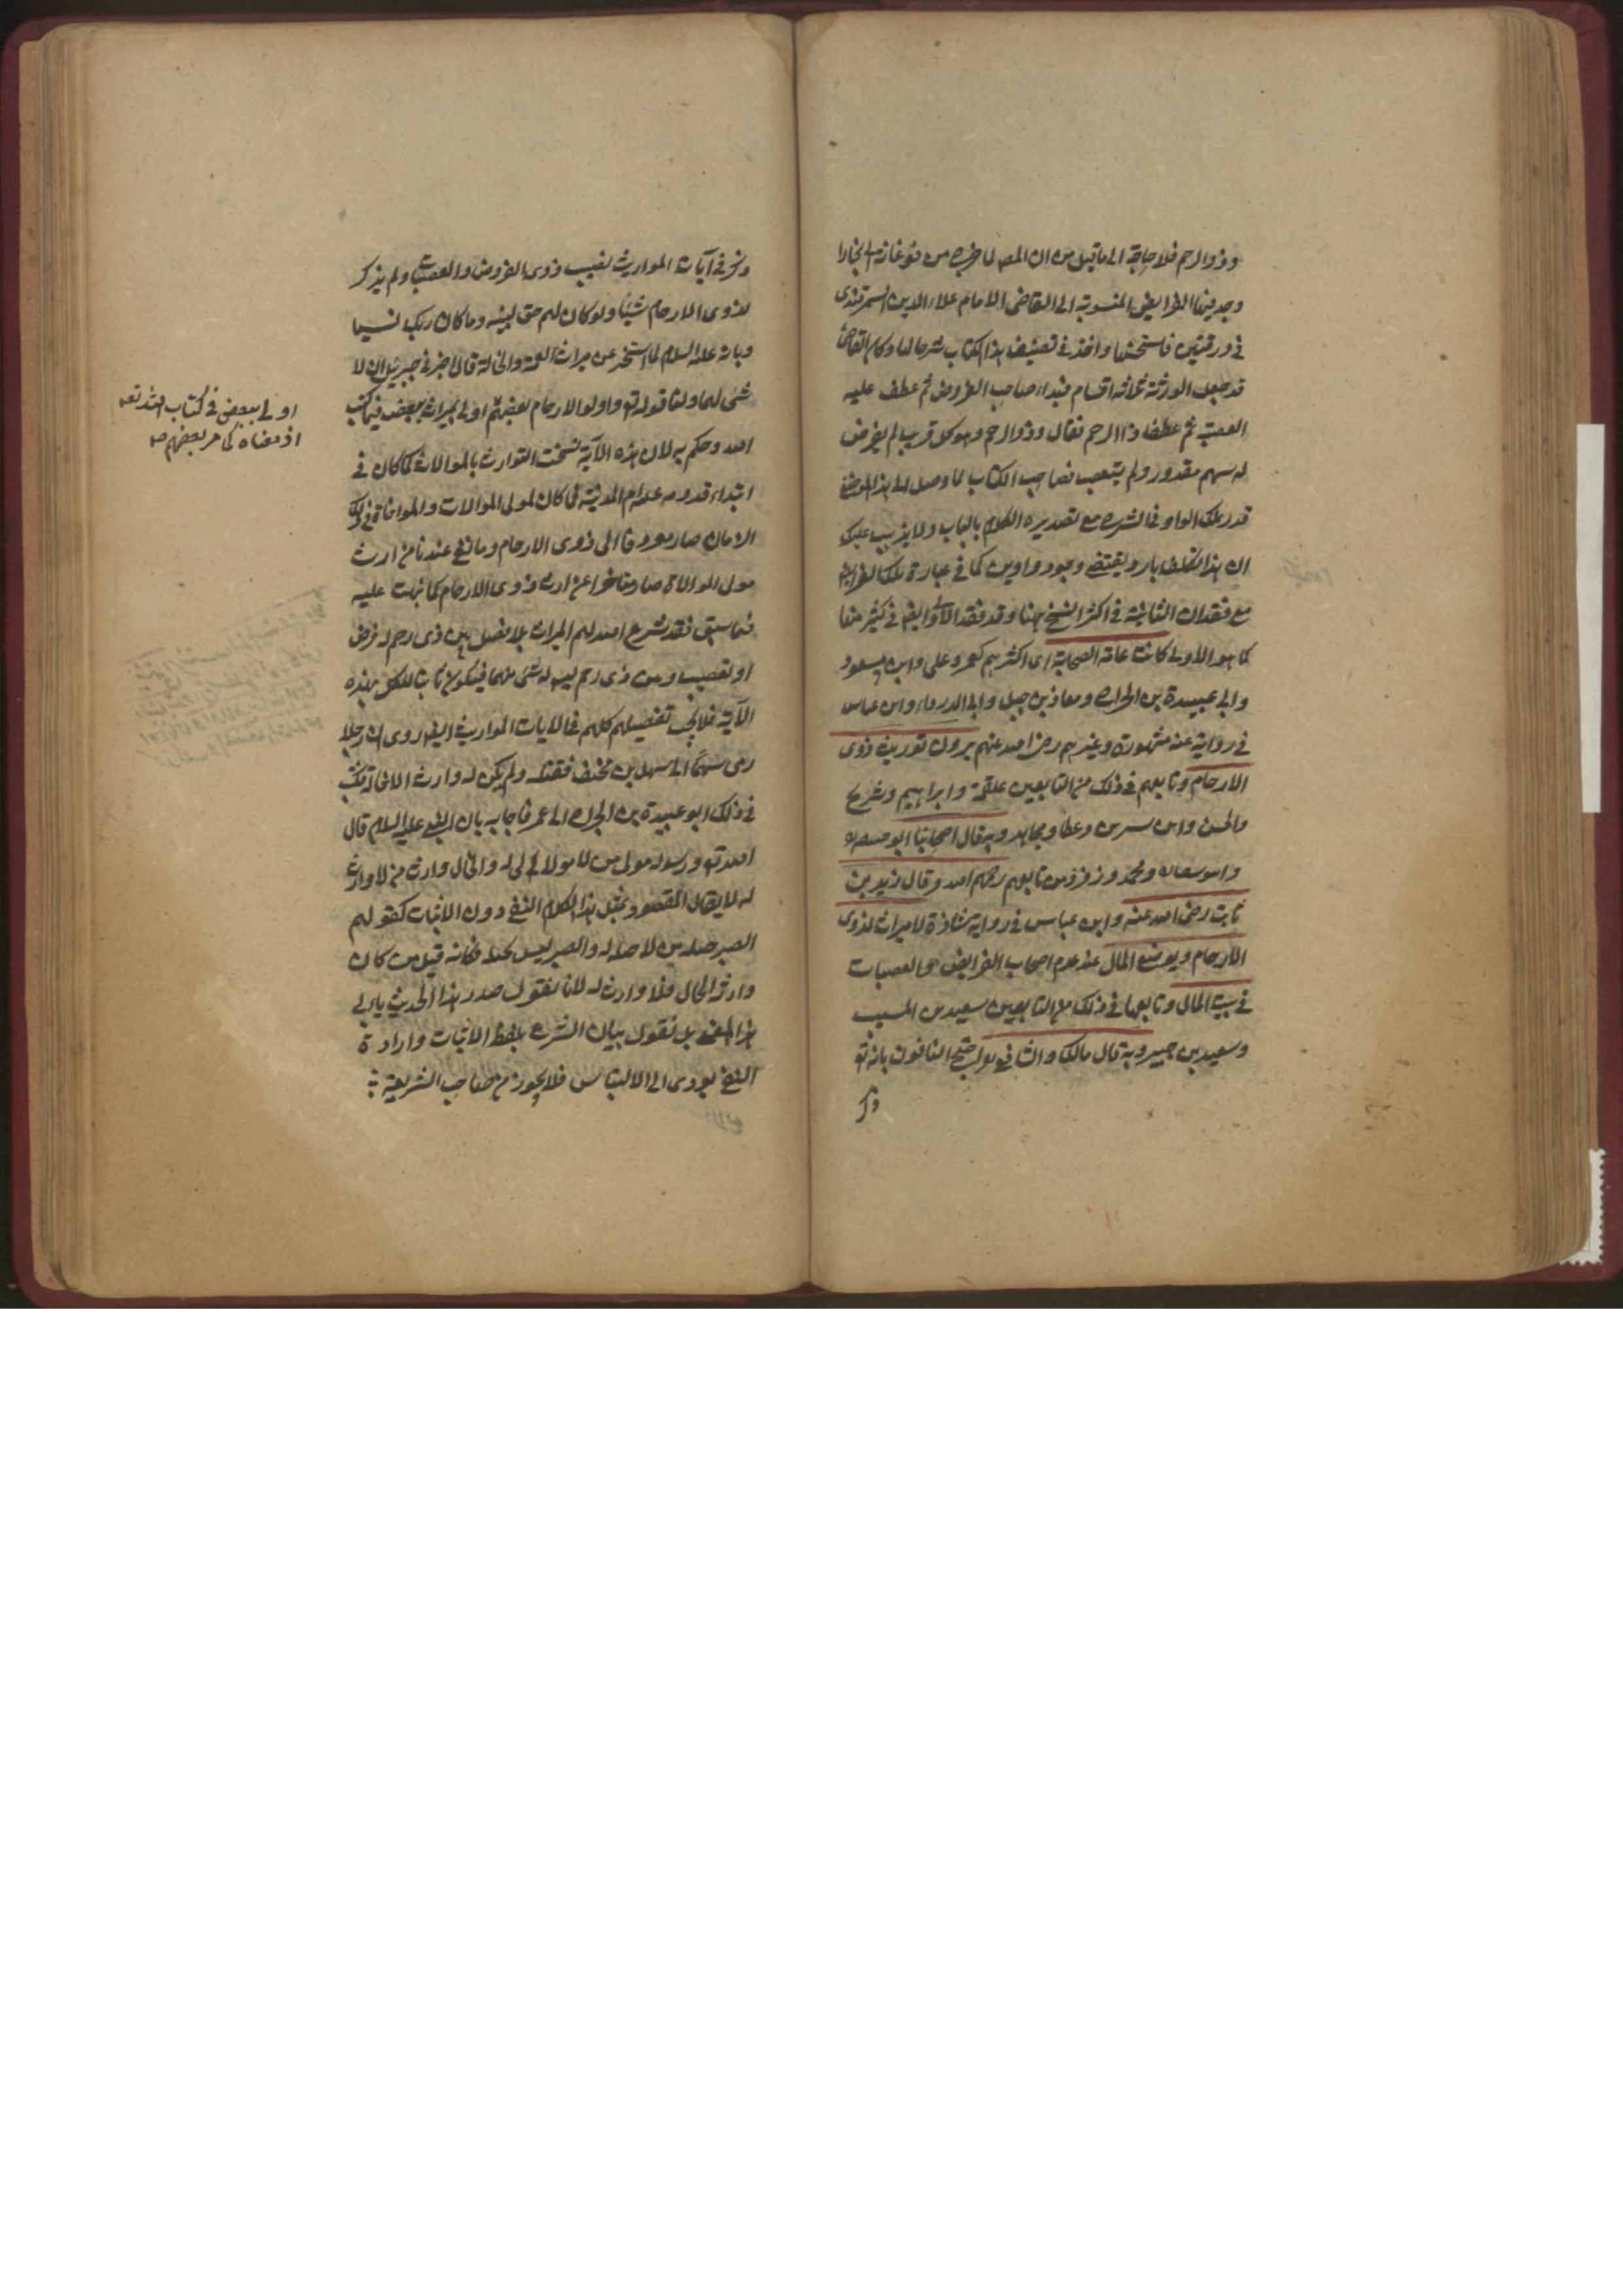 وذوالرحم فلا حاجة الى ما قيل من ان المص لما خرج من فرغانة الى بخارا
وجد فيها الفرايض المنسوبة الى القاضى الامام علاء الدين السمرقندى
فى ورقتين فاستحسنها واخذ فى تصنيف هذا الكتاب شرحا لها وكان القاضى
قد جعل الورثة ثلاثة اقسام فبداء صاحب الفروض ثم عطف عليه
العصبة ثم عطف ذا الرحم فقال وذوالرحم وهو كل قريب لم يفرض
له سهم مقدور ولم يتعصب فصاحب الكتاب لما وصل الى هذا الموضع
قدر تلك الواو فى الشرح مع تصديره الكلام بالباب ولا يذهب عليك
ان هذا تكلف بارد يقتضى وجود واوين كما فى عبارة تلك الفرايض
مع فقدان الثانية فى اكثر النسخ ههنا وقد فقد الاولى ايضا فى كثير منها
كما هو الاولى كانت عامة الصحابة اى اكثرهم كعمر وعلى وابن مسعود
وابى عبيدة بن الجراح ومعاذ بن جبل وابى الدرداء وابن عباس
فى رواية عنه مشهورة وغيرهم رضى الله عنهم يرون توريث ذوى
الارحام وتابعهم فى ذلك من التابعين علقمة وابراهيم وشريح
والحسن وابن سيرين وعطا ومجاهد وبه قال اصحابنا ابو حنيفة
وابو يوسف ومحمد وزفر ومن تابعهم رحمهم الله وقال زيد بن
ثابت رضى الله عنه وابن عباس فى رواية شاذة لا ميراث لذوى
الارحام ويوضع المال عند عدم اصحاب الفرايض والعصبات
فى بيت المال وتابعهما فى ذلك من التابعين سعيد بن المسيب
وسعيد بن جبير وبه قال مالك والشافعى احتج النافون بانه تع
ذكر
ذكر فى آيات المواريث نصيب ذوى الفروض والعصبات ولم يذكر
لذوى الارحام شيئا ولو كان لهم حق لبينه وما كان ربك نسيا
وبانه عليه السلام لما استخبر عن ميراث العمة والخالة قال اخبرنى جبريل ان لا
شئ لهما ولنا قوله تع واولوا الارحام بعضهم اولى بميراث بعض فيما كتب
الله وحكم به لان هذه الآية نسخت التوارث بالموالات كما كان فى
ابتداء قدومه عليه السلام المدينة فما كان لمولى الموالات والمواخاة فى ذلك
الزمان صار مصروفا الى ذوى الارحام وما بقى عندنا من ارث
مولى الموالاة صار متاخرا عن ارث ذوى الارحام كما نبهت عليه
فيما سبق فقد شرع الله لهم الميراث بلا فصل بين ذى رحم له فرض
او تعصيب وبين ذى رحم ليس له شئ منهما فيكون ثابتا للكل بهذه
الآية فلا يجب تفصيلهم كلهم فى آيات المواريث ايضا روى ان رجلا
رمى سهما الى سهل بن حنيف فقتله ولم يكن له وارث الا خاله فكتب
فى ذلك ابو عبيدة بن الجراح الى عمر فاجابه بان النبى عليه السلام قال
الله تع ورسوله مولى من لا مولى له والخال وارث من لا وارث
له لا يقال المقصود بمثل هذا الكلام النفى دون الاثبات كقولهم
الصبر حيلة من لا حيلة له والصبر ليس بحيلة فكانه قيل من كان
وارثه الخال فلا وارث له لانا نقول صدر هذا الحديث يابى
هذا المعنى بل نقول بيان الشرع بلفظ الاثبات وارادة
النفى يودى الى الالتباس فلا يجوز من صاحب الشريعة
اولى ببعض فى كتاب الله تعه
اذ معناه كما مر بعضهم صه